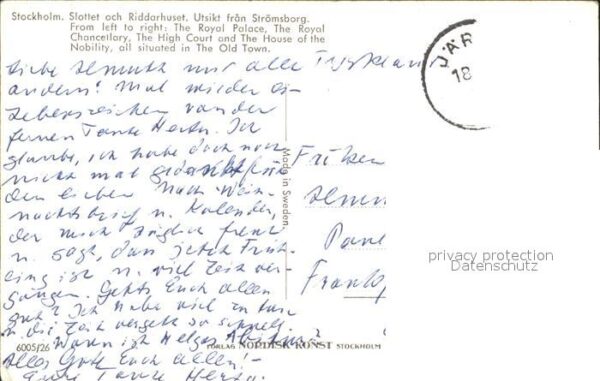 Stockholm. Slottet och Riddarhuset. Utsikt från Strömsborg.
From left to right: The Royal Palace, The Royal
Chancellary, The High Court and The House of the
Nobility, all situated in The Old Town.
Liebe Helmuth und alle
andern! Mal wieder ei-
Lebenszeichen von der
fernen Tante Herta. Ich
glaube, ich habe doch noch
nicht mal gedankt für
den lieben Nach Weih-
nachtsbrief u. Kalender,
der mich täglich freut
u. sagt, dass jetzt Früh-
ling ist u. viel Zeit ver-
gangen. Gehts Euch allen
gut? Ich habe viel zu tun
u. die Zeit vergeht so schnell.
Wann ist Helgas
Alles Gute Euch allen!
Eure Tante Herta.
JÄR
18
Made in Sweden
Frank
privacy protection
Datenschutz
6005/26
FÖRLAG NORDISK KONST STOCKHOLM